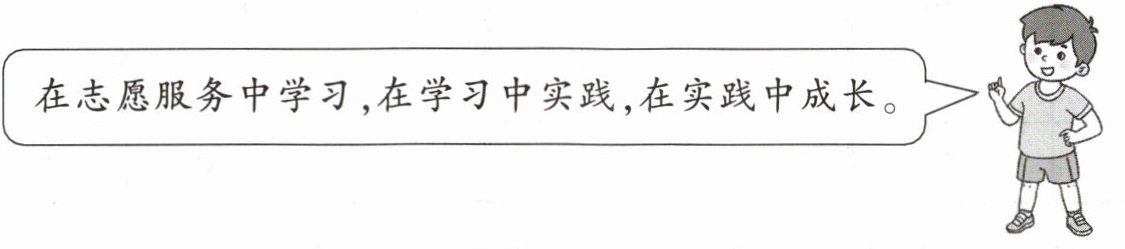 在志愿服务中学习,在学习中实践,在实践中成长。